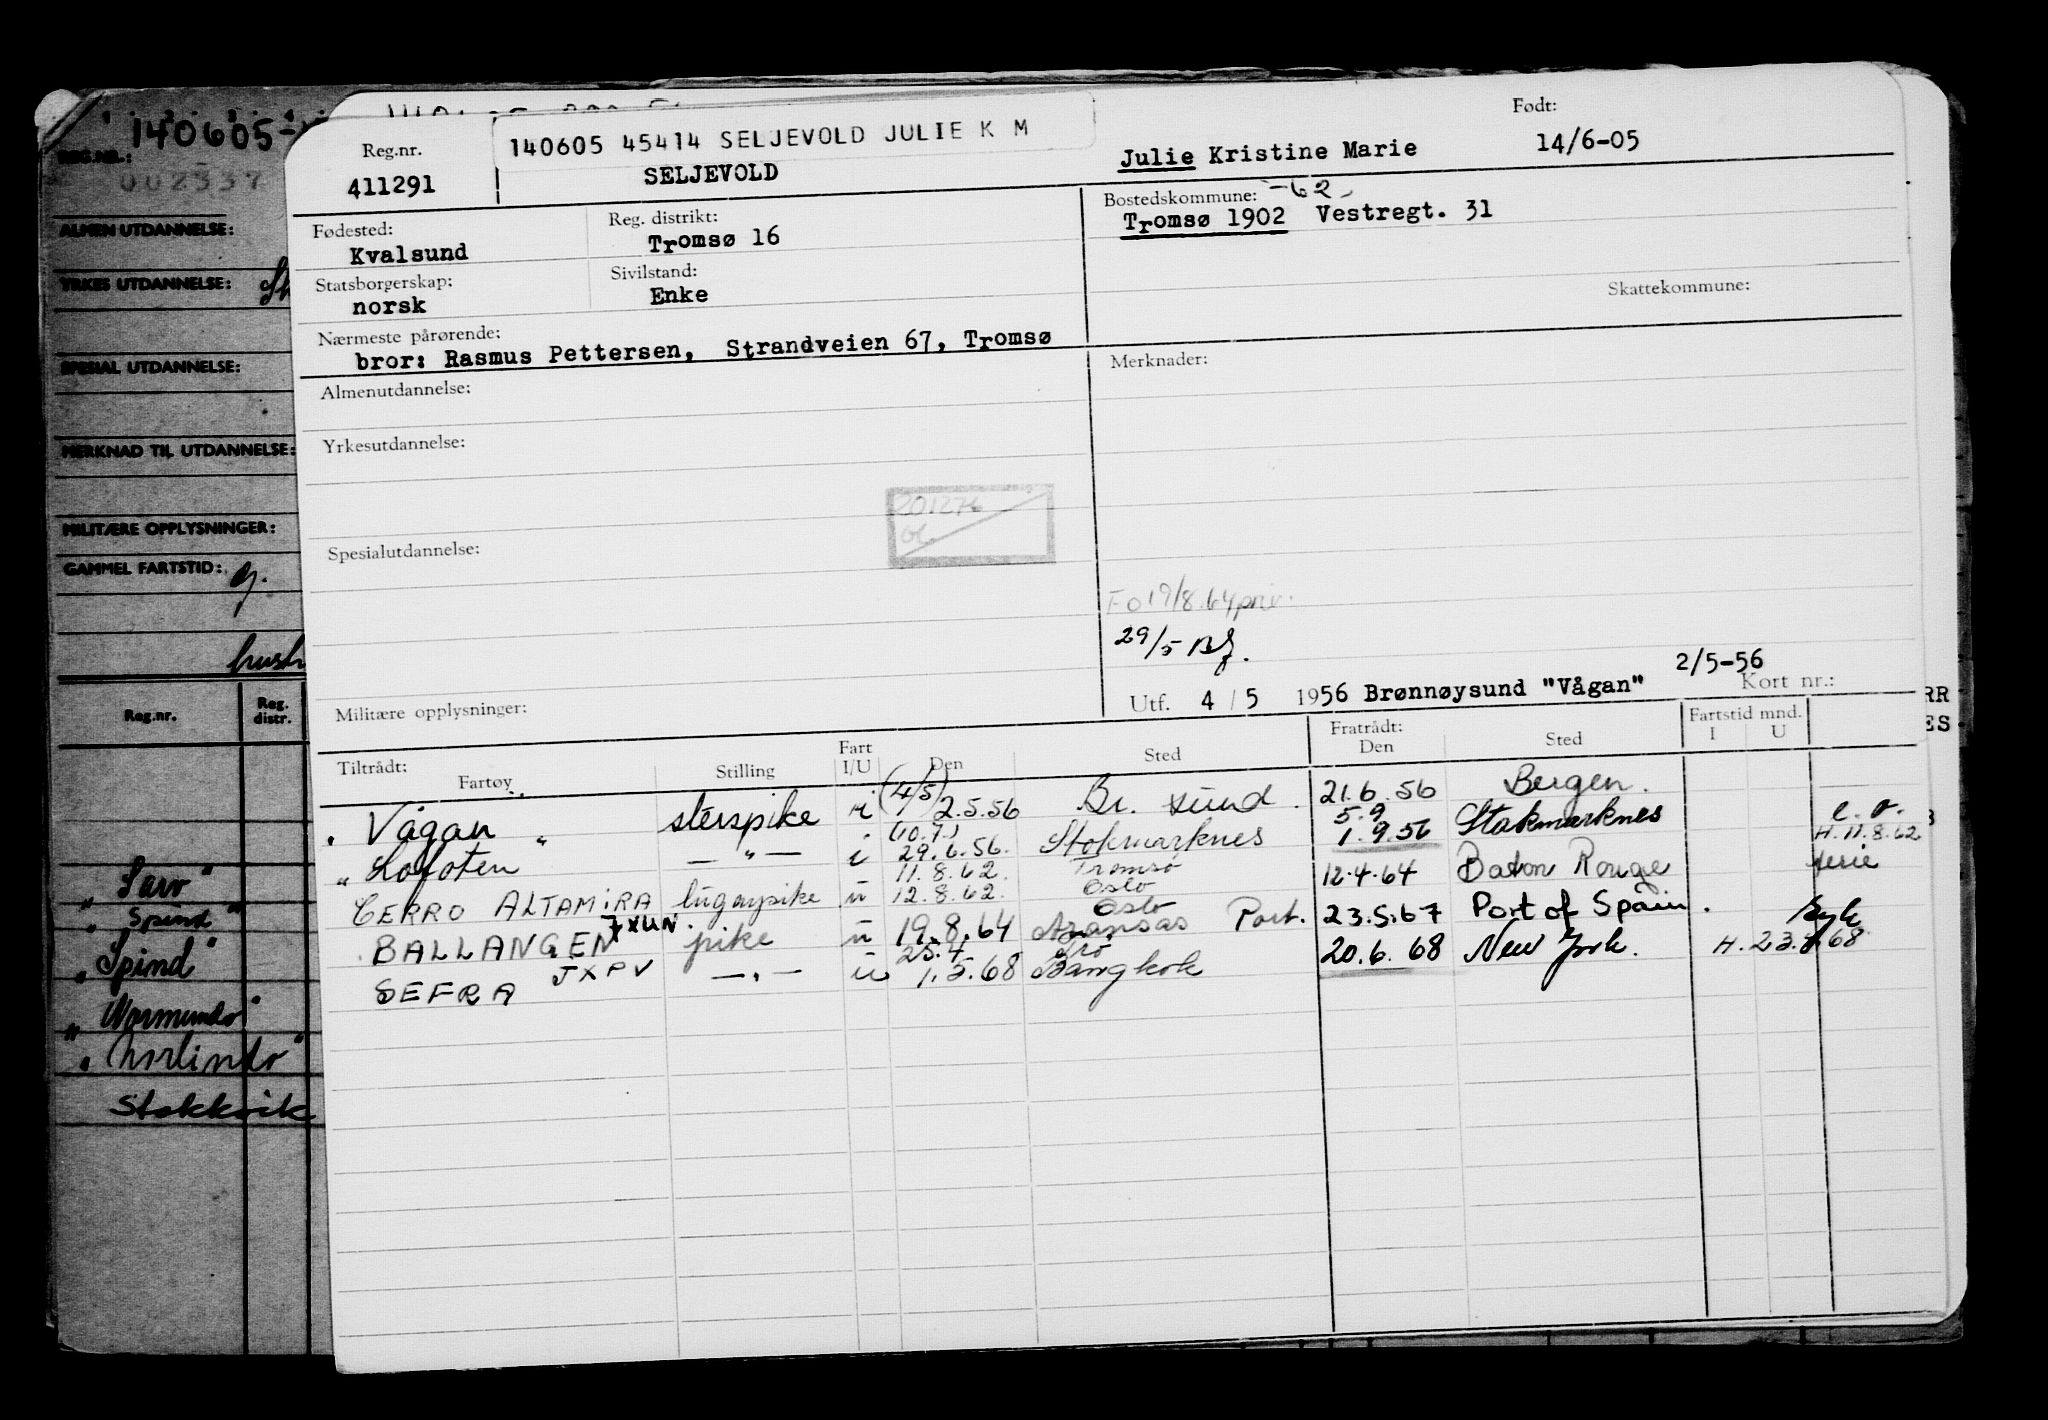 140605
Født:
Reg.nr.
140605 45414 SELJEVOLD JULIE K M
Julie Kristine Marie
14/6-05
REG.NR.:
002337
411291
SELJEVOLD
Bostedskommune: -62-
ALMEN UTDANNELSE:
Fødested:
Reg. distrikt:
Tromsø 1902 Vestregt. 31
Kvalsund
Tromsø 16
YRKES UTDANNELSE:
Statsborgerskap:
Sivilstand:
norsk
Enke
Skattekommune:
Nærmeste pårørende:
bror: Rasmus Pettersen, Strandveien 67, Tromsø
SPESIAL UTDANNELSE:
Merknader:
Almenutdannelse:
MERKNAD TIL UTDANNELSE:
Yrkesutdannelse:
201276
MILITÆRE OPPLYSNINGER:
Spesialutdannelse:
GAMMEL FARTSTID:
19/8.64
29/5
2/5-56
Utf. 4/5 1956 Brønnøysund "Vågan"
Kort nr.:
Militære opplysninger:
Reg.nr.
Reg. distr.
RR
ES
Tiltrådt:
Fartøy
Stilling
Fart I/U
Den
Sted
Fratrådt:
Den
Sted
Fartstid mnd.
I U
Vågan sterspike i (4/5) 2.5.56 Br. sund. 21.6.56 Bergen.
"Lofoten" — " — i (10.7.) 29.6.56. Stokmarknes 5.9 1.9.56 Stokmarknes e. o.
CERRO ALTAMIRA lugarpike u 11.8.62. 12.8.62. Tromsø Oslo 12.4.64 Baton Rouge H. 11.8.62 ferie
BALLANGEN JXUN pike u 19.8.64 Oslo Aransas Port. 23.5.67 Port of Spain.
SEFRA JXPV — " — u 25.4. 1.5.68 Bangkok 20.6.68 New York. syk
"Sarv"
"Spind"
"Spind"
"Norlindo"
Stokkvik